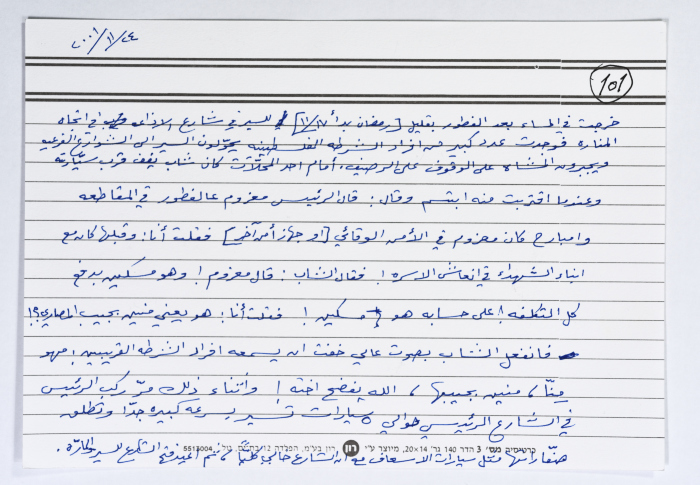 ٢٤/١١/٢٠٠١
101
خرجت في المساء بعد الفطور بقليل [رمضان بدأ ١١/١٧] للسير في شارع الاذاعه في اتجاه
المناره فوجدت عدد كبير من افراد الشرطه الفلسطينيه يحوّلون السير الى الشوارع الفرعيه
ويجبرون المشاه على الوقوف على الرصيف، أمام احد المحلّات كان شاب يقف قرب سيّارته
وعندما اقتربت منه ابتسم وقال: قال الرئيس معزوم عالفطور في المقاطعه
وامبارح كان معزوم في الأمن الوقائي [او جهاز أمن آخر] فقلت أنا: وقبلها كان مع
ابناء الشهداء في انعاش الاسره! فقال الشاب: قال معزوم! وهو مسكين بدفع
كل التكلفه! على حسابه هو مسكين! فقلت أنا: هو يعني منين بجيب المصاري؟!
فانفعل الشاب بصوت عالي خفت ان يسمعه افراد الشرطه القريبين: مهو
منّا، منين بجيبها، الله يفضح اخته! وأثناء ذلك مرّ ركب الرئيس
في الشارع الرئيسي حوالي ٥ سيارات تسير بسرعه كبيره جدّا وتطلق
صفّاراتها مثل سيارات الاسعاف مع ان الشارع خالي طبعًا، ثم اعيد فتح الشارع للسير والمارّه.
כרטיסיה מס' 3 הדר 140 גר' 14×20, מיוצר ע"י רון בע"מ, הפלדה 12 טל. 5513004